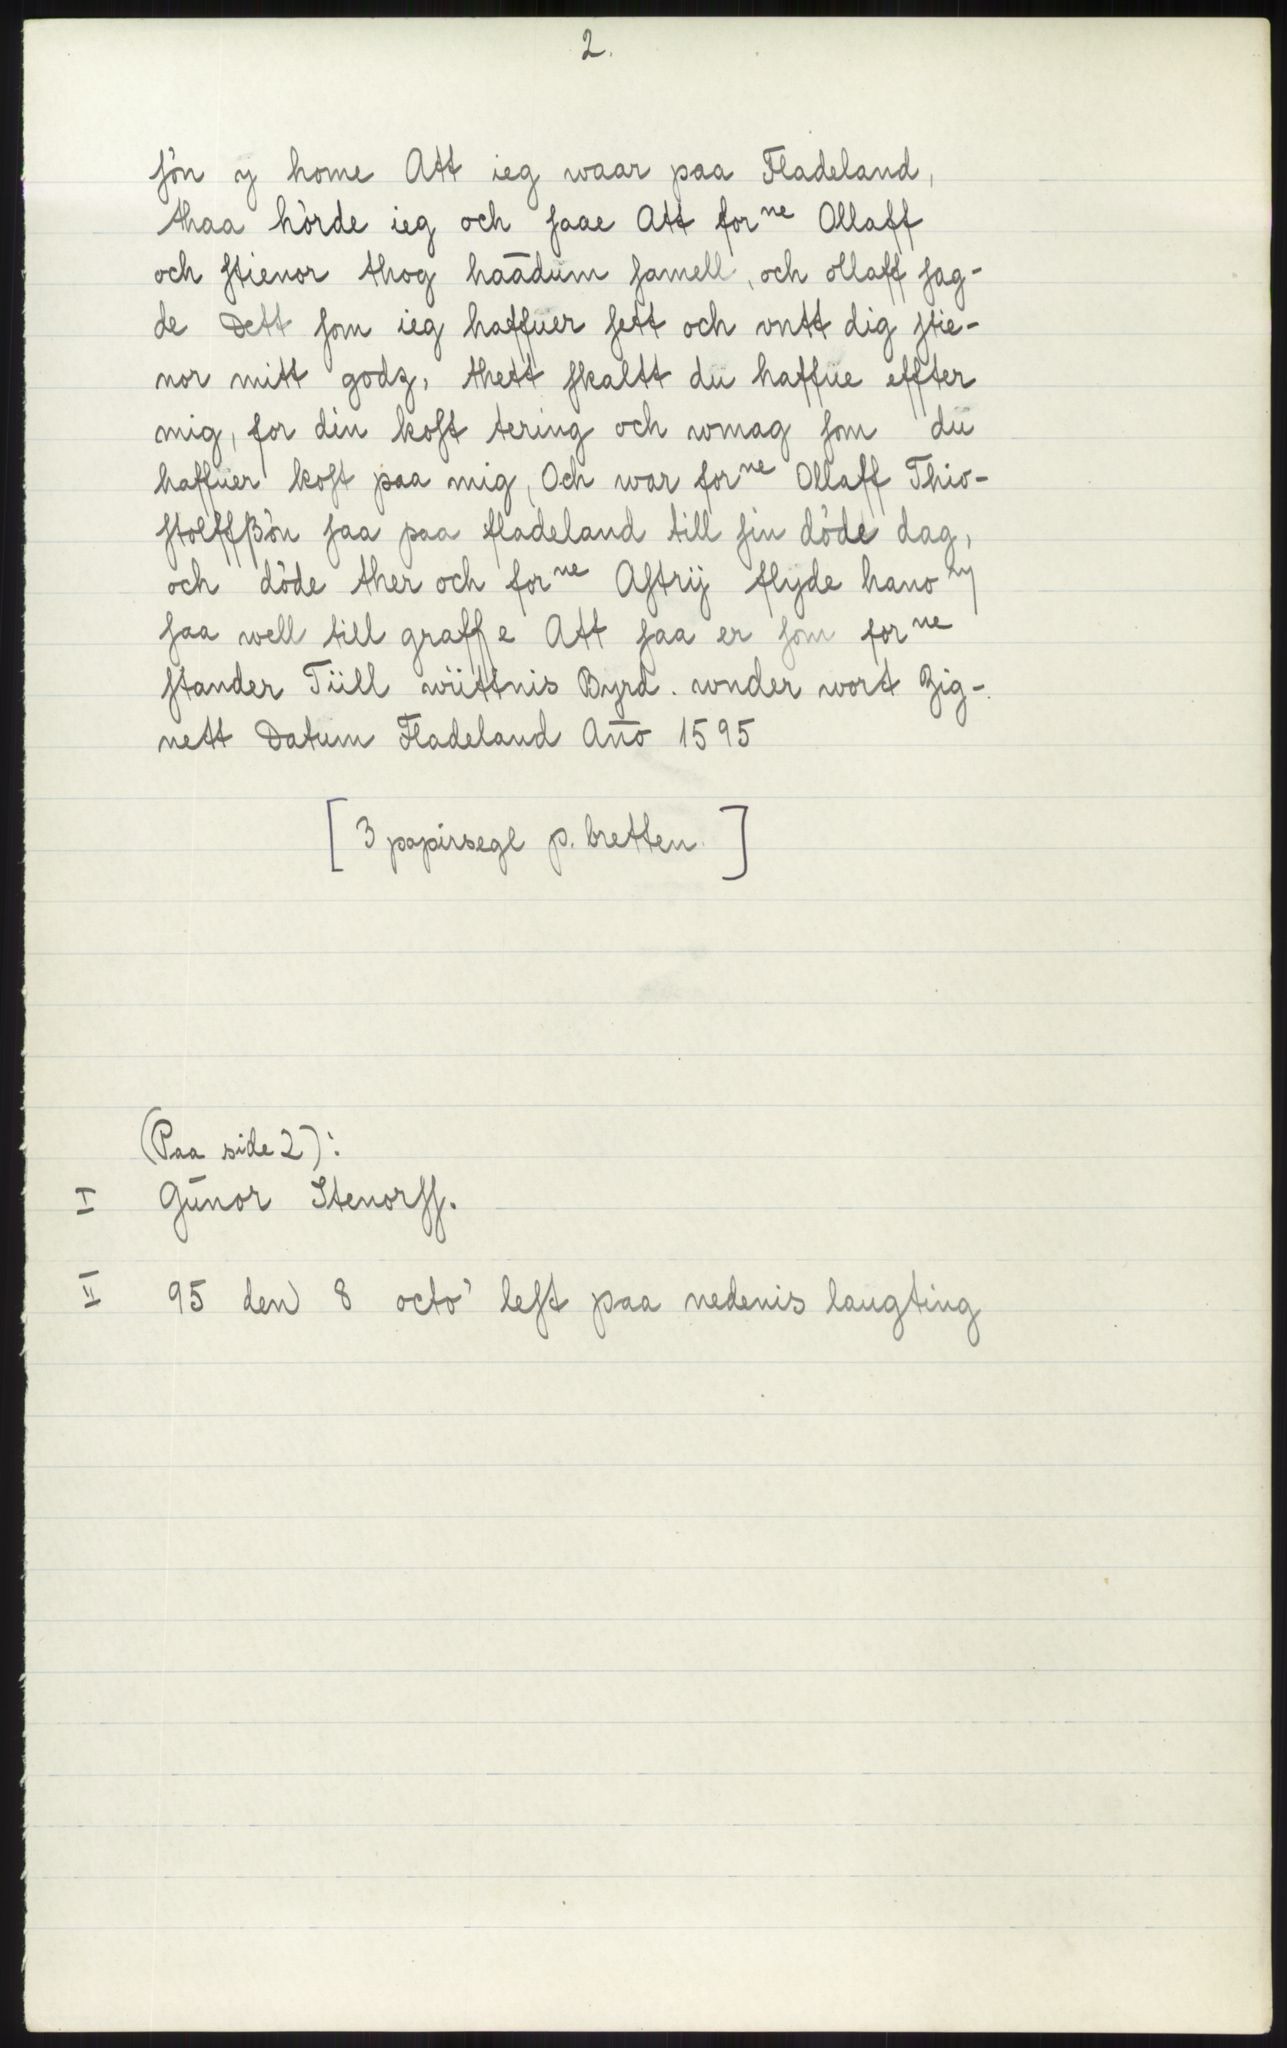 2.
ſòn y home Att ieg waar paa Fladeland,
thaa hòrde ieg och ſaae Att for ne Ollaff
och ſtienor thog haādum ſamell, och ollaff ſag-
de Dett ſom ieg haffüer ſett och vntt dig ſtie-
nor mitt godz, thett ſkaltt dü haffüe effter
mig, for din koſt tering och wmag ſom dü
haffüer koſt paa mig, Och war for ne Ollaff Thio-
ſtolffßòn ſaa paa fladeland till ſin dòde dag,
och dòde ther och for ne Aſtrij flyde hano m
ſaa well till graffe Att ſaa er ſom for ne
ſtander Tüll wüttnis Byrd. wnder wort Zig-
nett Datum Fladeland An̄o 1595
[3 papirsegl p. bretten.]
(Paa side 2):
I Gūnor Stenorſſ.
II 95 den 8 octo' leſt paa nedenis laugting